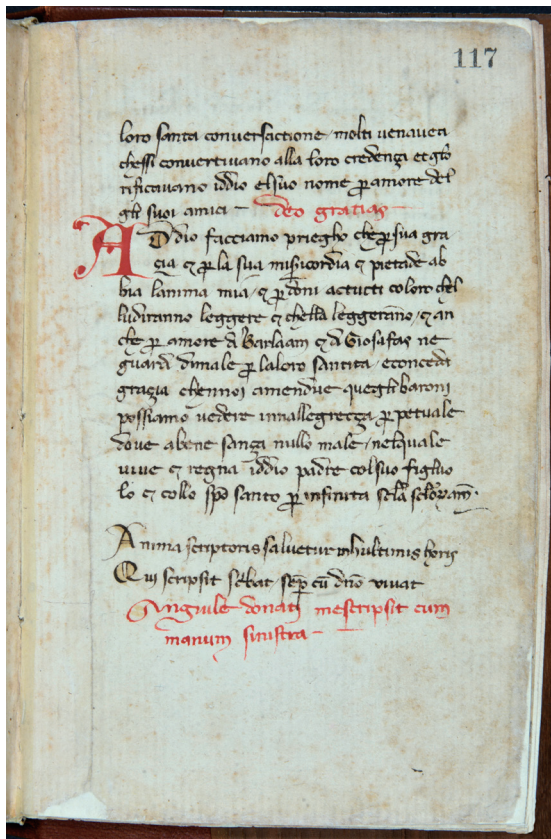 117
loro santa conversactione molti venaveti
chessi convertivano alla loro credença et glo
rificavano iddio elsuo nome p amore del
gli suoi amici deo gratias
A Ddio facciamo priegho che p sua gra
çia & p la sua misericordia & pietade ab
bia lanima mia & p doni actucti coloro chel
ludiranno leggere & chella leggerano & an
che p amore di Barlaam & di Giosafas ne
guardi dimale p laloro santita econceda
grazia chennoi amendue quegli baroni
possiamo vedere innallegrecça p petuale
dove abene sança nullo male nelquale
vive & regna iddio padre colsuo figluo
lo & collo spo santo p infinita scla scloram
Anima scriptoris salvetur inhultimis horis
Qui scripsit scbat sep cu dno vivat
donati mescripsit cum
manum sinistra